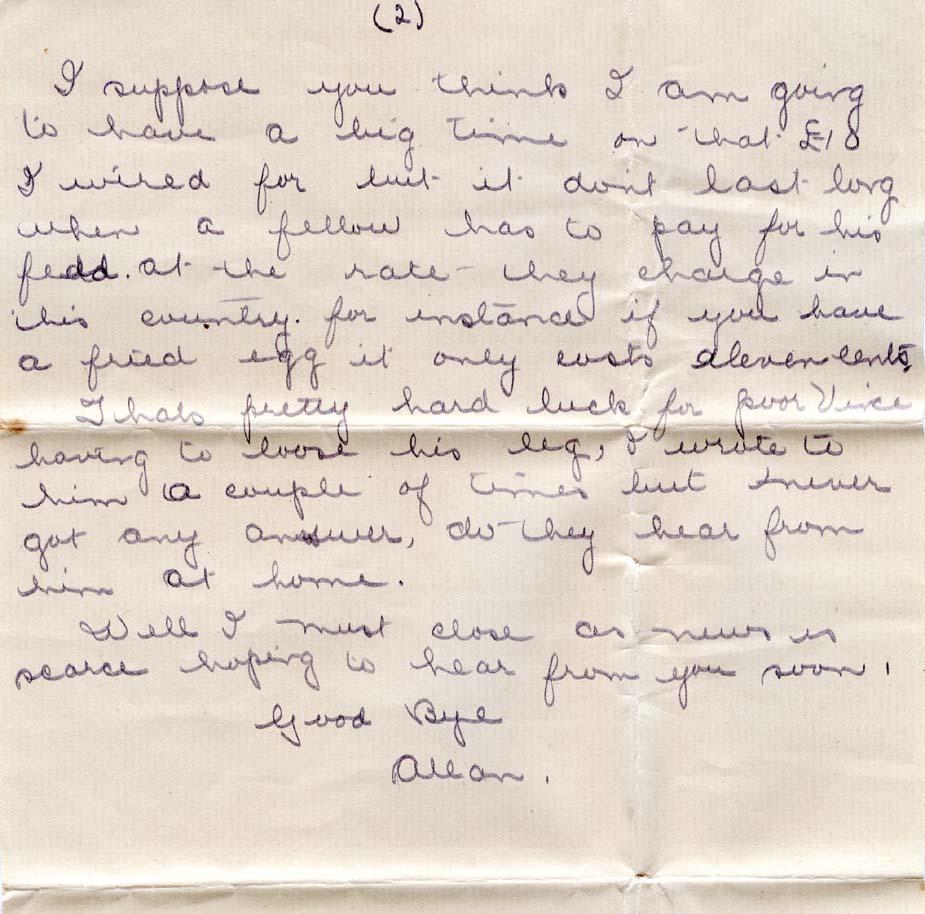 (2)
I suppose you think I am going
to have a big time on that £18
I wired for but it dont last long
when a fellow has to pay for his
fedd. at the rate they charge in
this country. for instance if you have
a fried egg it only costs eleven cents,
Thats pretty hard luck for poor Vince
having to loose his leg, I wrote to
him a couple of times but never
got any answer, do they hear from
him at home.
Well I must close as news is
scarce hoping to hear from you soon,
Good Bye
Allan.